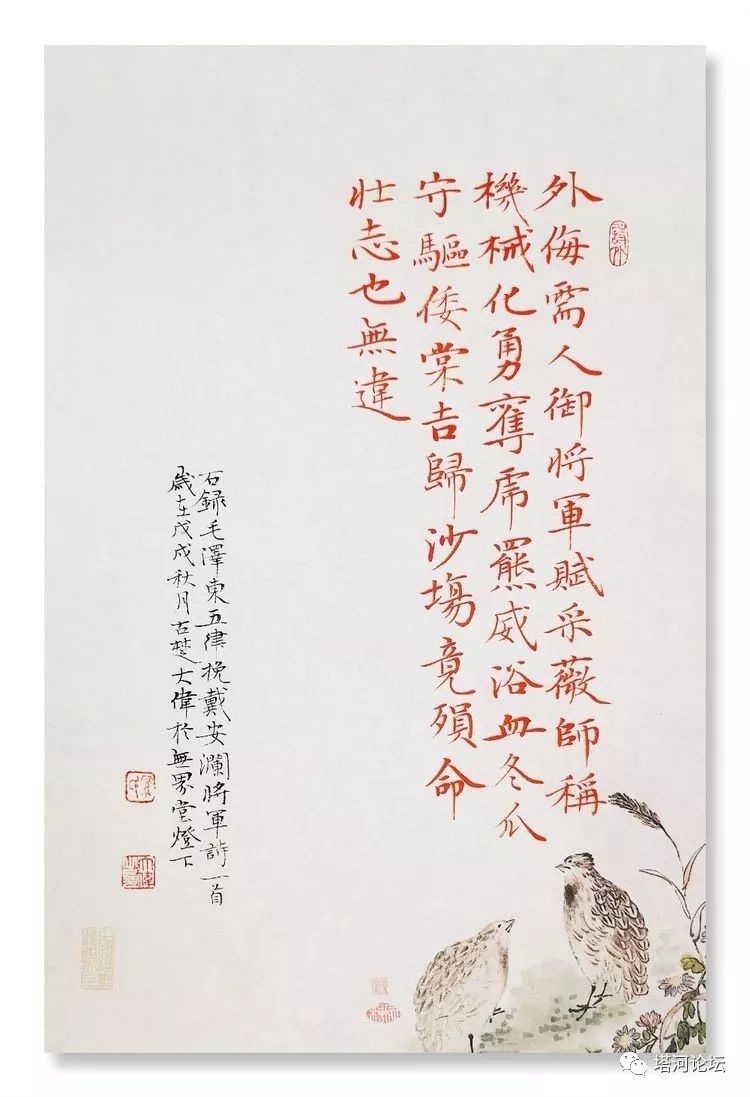 外侮需人御将軍賦采薇師稱
機械化勇奪虎羆威浴血冬瓜
守驅倭棠吉歸沙場竟殞命
壮志也無違
右録毛澤東五律挽戴安瀾將軍詩一首
歲在戊戌秋月古楚大偉於無界堂燈下
塔河论坛